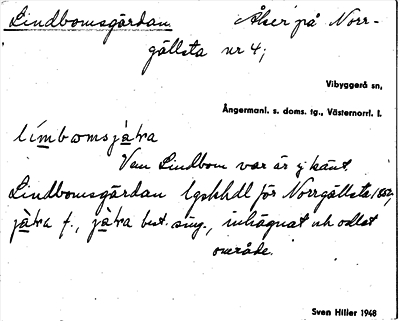 Lindbomsgärdan. Åker på Norr-
gällsta nr 4;
Vibyggerå sn,
Ångermanl. s. doms. tg., Västernorrl. l.
límbomsjä̀ra
Vem Lindbom var är ej känt.
Lindbomsgärdan lgskhdl för Norrgällsta 1882,
jä̀ra f., jä̀ra best. sing., inhägnat och odlat
område.
Sven Hiller 1948